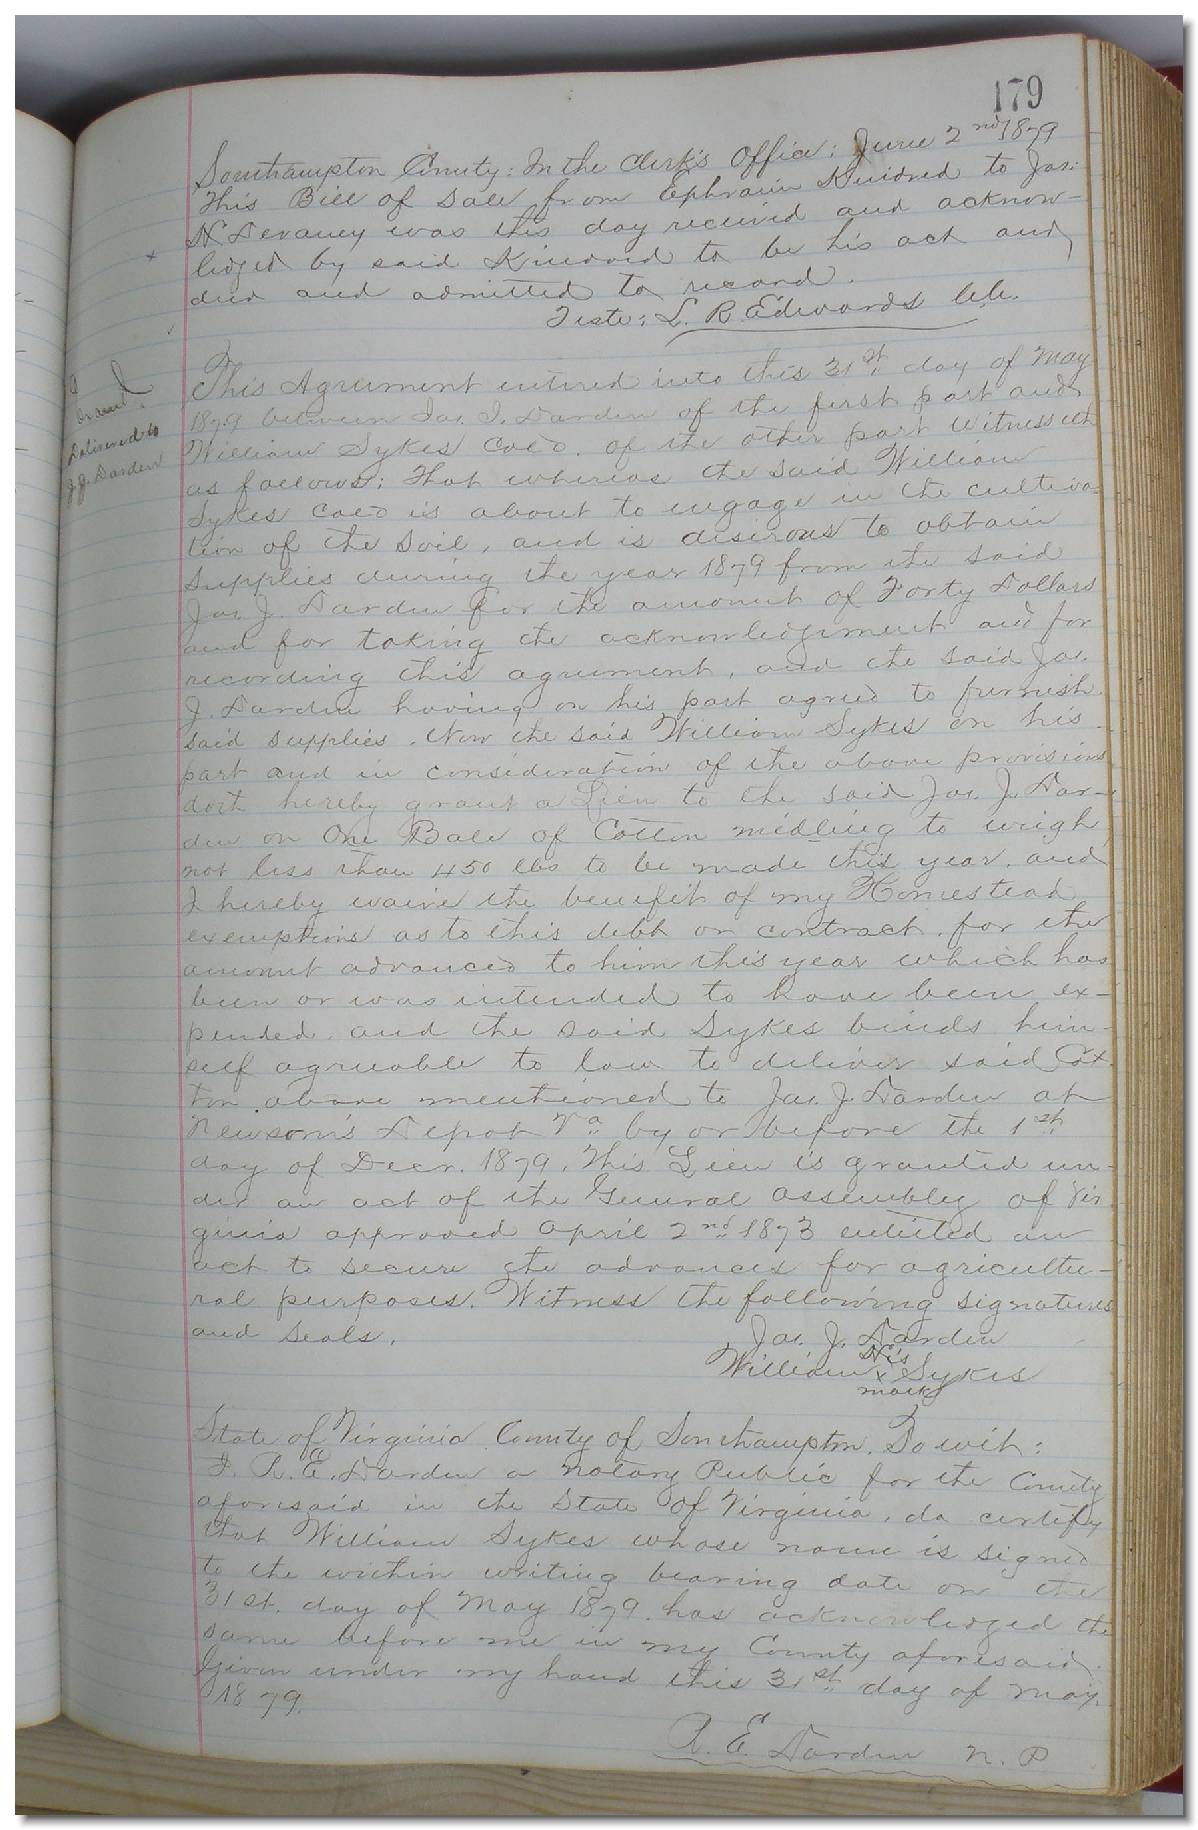 179
Southampton County: In the Clerk's Office: June 2nd 1879
This Bill of Sale from Ephraim Kindred to Jas.
N Devaney was this day received and acknow-
ledged by said Kindred to be his act and
deed and admitted to record.
Teste: L. R. Edwards C.C.
This Agreement entered into this 31st day of May
1879 between Jas. J. Darden of the first part and
William Sykes Cold. of the other part Witnesseth
as follows: That whereas the said William
Sykes Cold is about to engage in the cultiva-
tion of the soil, and is desirous to obtain
supplies during the year 1879 from the said
Jas. J. Darden for the amount of Forty Dollars
and for taking the acknowledgement and for
recording this agreement, and the said Jas.
J. Darden having on his part agreed to furnish
said supplies. Now the said William Sykes on his
part and in consideration of the above provisions
doth hereby grant a Lien to the said Jas. J. Dar-
den on One Bale of Cotton midling to weigh
not less than 450 lbs to be made this year. and
I hereby waive the benefit of my Homestead
exemptions as to this debt or contract. for the
amount advanced to him this year which has
been or was intended to have been ex-
pended. and the said Sykes binds him-
self agreeable to law to deliver said Cot-
ton above mentioned to Jas. J. Darden at
Newsom's Depot Va by or before the 1st
day of Decr. 1879. This Lien is granted un-
der an act of the General assembly of Vir
ginia approved April 2nd 1873 entitled an
act to secure the advances for agricultu-
ral purposes. Witness the following signatures
and seals.
Jas. J. Darden
His
William x Sykes
mark
State of Virginia County of Southampton. To wit:
I. R. E. Darden a notary Public for the County
aforesaid in the State of Virginia, do certify
that William Sykes whose name is signed
to the within writing bearing date on the
31st. day of May 1879. has acknowledged the
same before me in my County aforesaid.
Given under my hand this 31st day of May.
1879.
R. E. Darden N. P
Delivered to
J J Darden